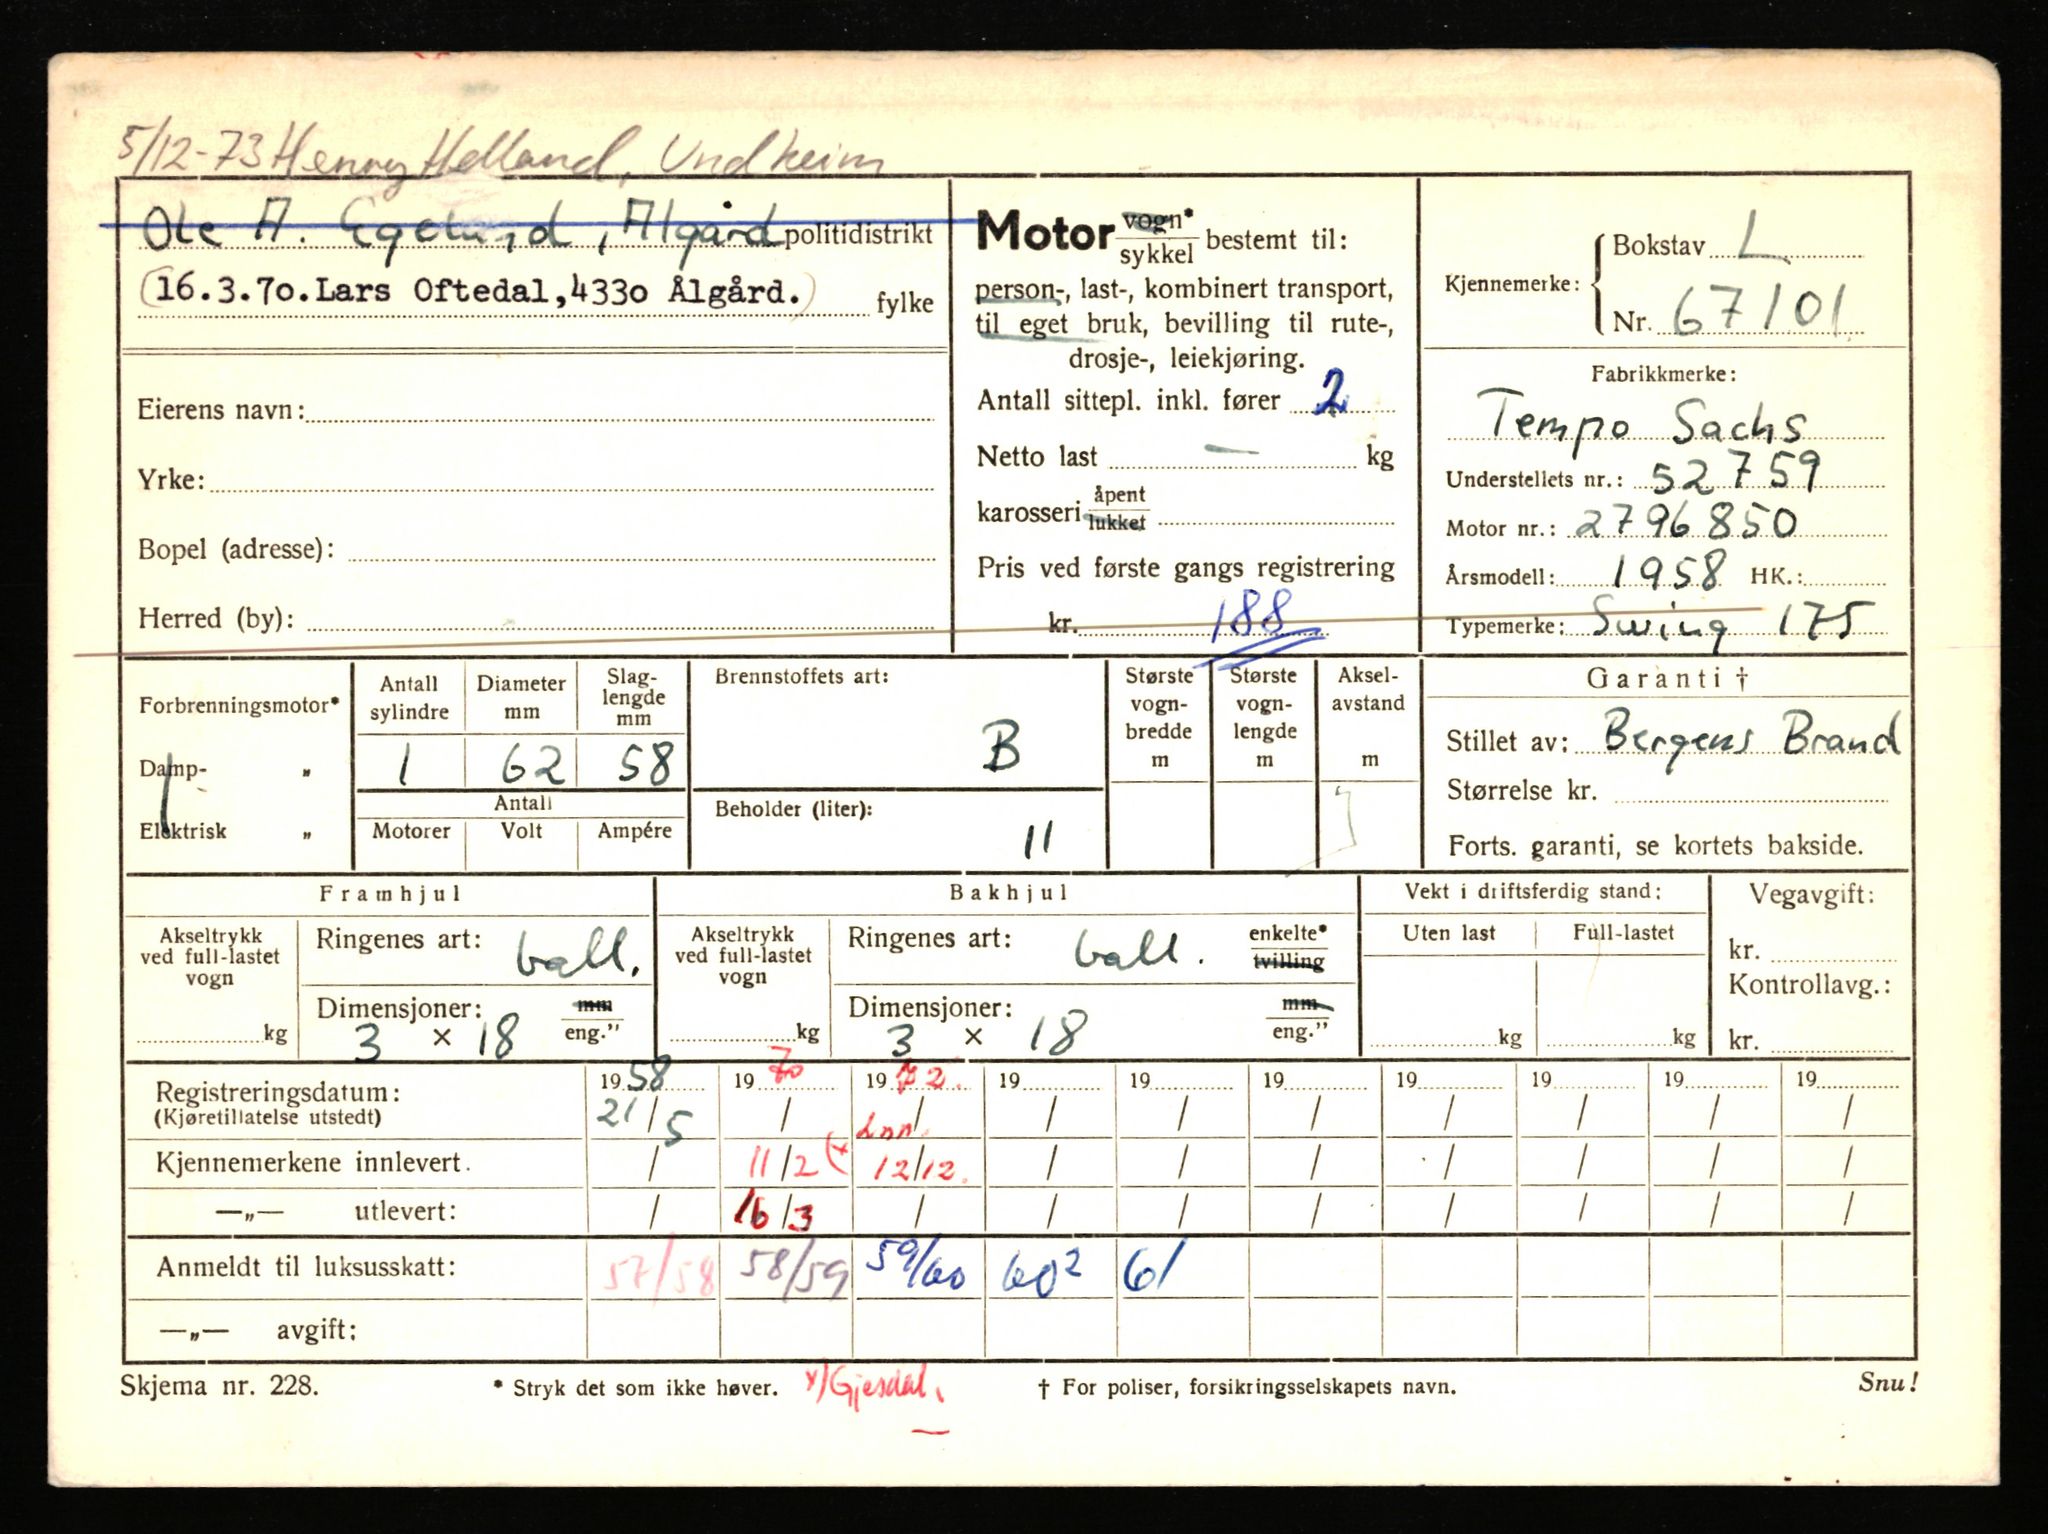 5/12-73 Henry Helland, Undheim
Ole A. Egelund, Ålgård politidistrikt
(16.3.70.Lars Oftedal,4330 Ålgård.) fylke
Eierens navn:
Yrke:
Bopel (adresse):
Herred (by):
Motor vogn*/sykkel bestemt til:
person-, last-, kombinert transport,
til eget bruk, bevilling til rute-,
drosje-, leiekjøring.
Antall sittepl. inkl. fører 2
Netto last — kg
karosseri åpent/lukket
Pris ved første gangs registrering
kr. 188
Kjennemerke: Bokstav L
Nr. 67101
Fabrikkmerke:
Tempo Sachs
Understellets nr.: 52759
Motor nr.: 2796850
Årsmodell: 1958 HK.:
Typemerke: Swing 175
Forbrenningsmotor*
Damp- „
Elektrisk „
Antall sylindre
1
Diameter mm
62
Slag-lengde mm
58
Antall
Motorer Volt Ampére
Brennstoffets art:
B
Beholder (liter):
11
Største vogn-bredde m
Største vogn-lengde m
Aksel-avstand m
Garanti †
Stillet av: Bergens Brand
Størrelse kr.
Forts. garanti, se kortets bakside.
Framhjul
Akseltrykk ved full-lastet vogn
kg
Ringenes art: ball.
Dimensjoner: mm/eng."
3 × 18
Bakhjul
Akseltrykk ved full-lastet vogn
kg
Ringenes art: ball. enkelte*/tvilling
Dimensjoner: mm/eng."
3 × 18
Vekt i driftsferdig stand:
Uten last Full-lastet
kg kg
Vegavgift:
kr.
Kontrollavg.:
kr.
Registreringsdatum: 1958 1970 1972. 19 19 19 19 19 19 19
(Kjøretillatelse utstedt) 21/5 / / / / / / / / /
Inn.
Kjennemerkene innlevert. / 11/2 (x 12/12. / / / / / / /
—„— utlevert: / 16/3 / / / / / / / /
Anmeldt til luksusskatt: 57/58 58/59 59/60 60² 61
—„— avgift:
Skjema nr. 228. * Stryk det som ikke høver. x) Gjesdal. † For poliser, forsikringsselskapets navn. Snu!